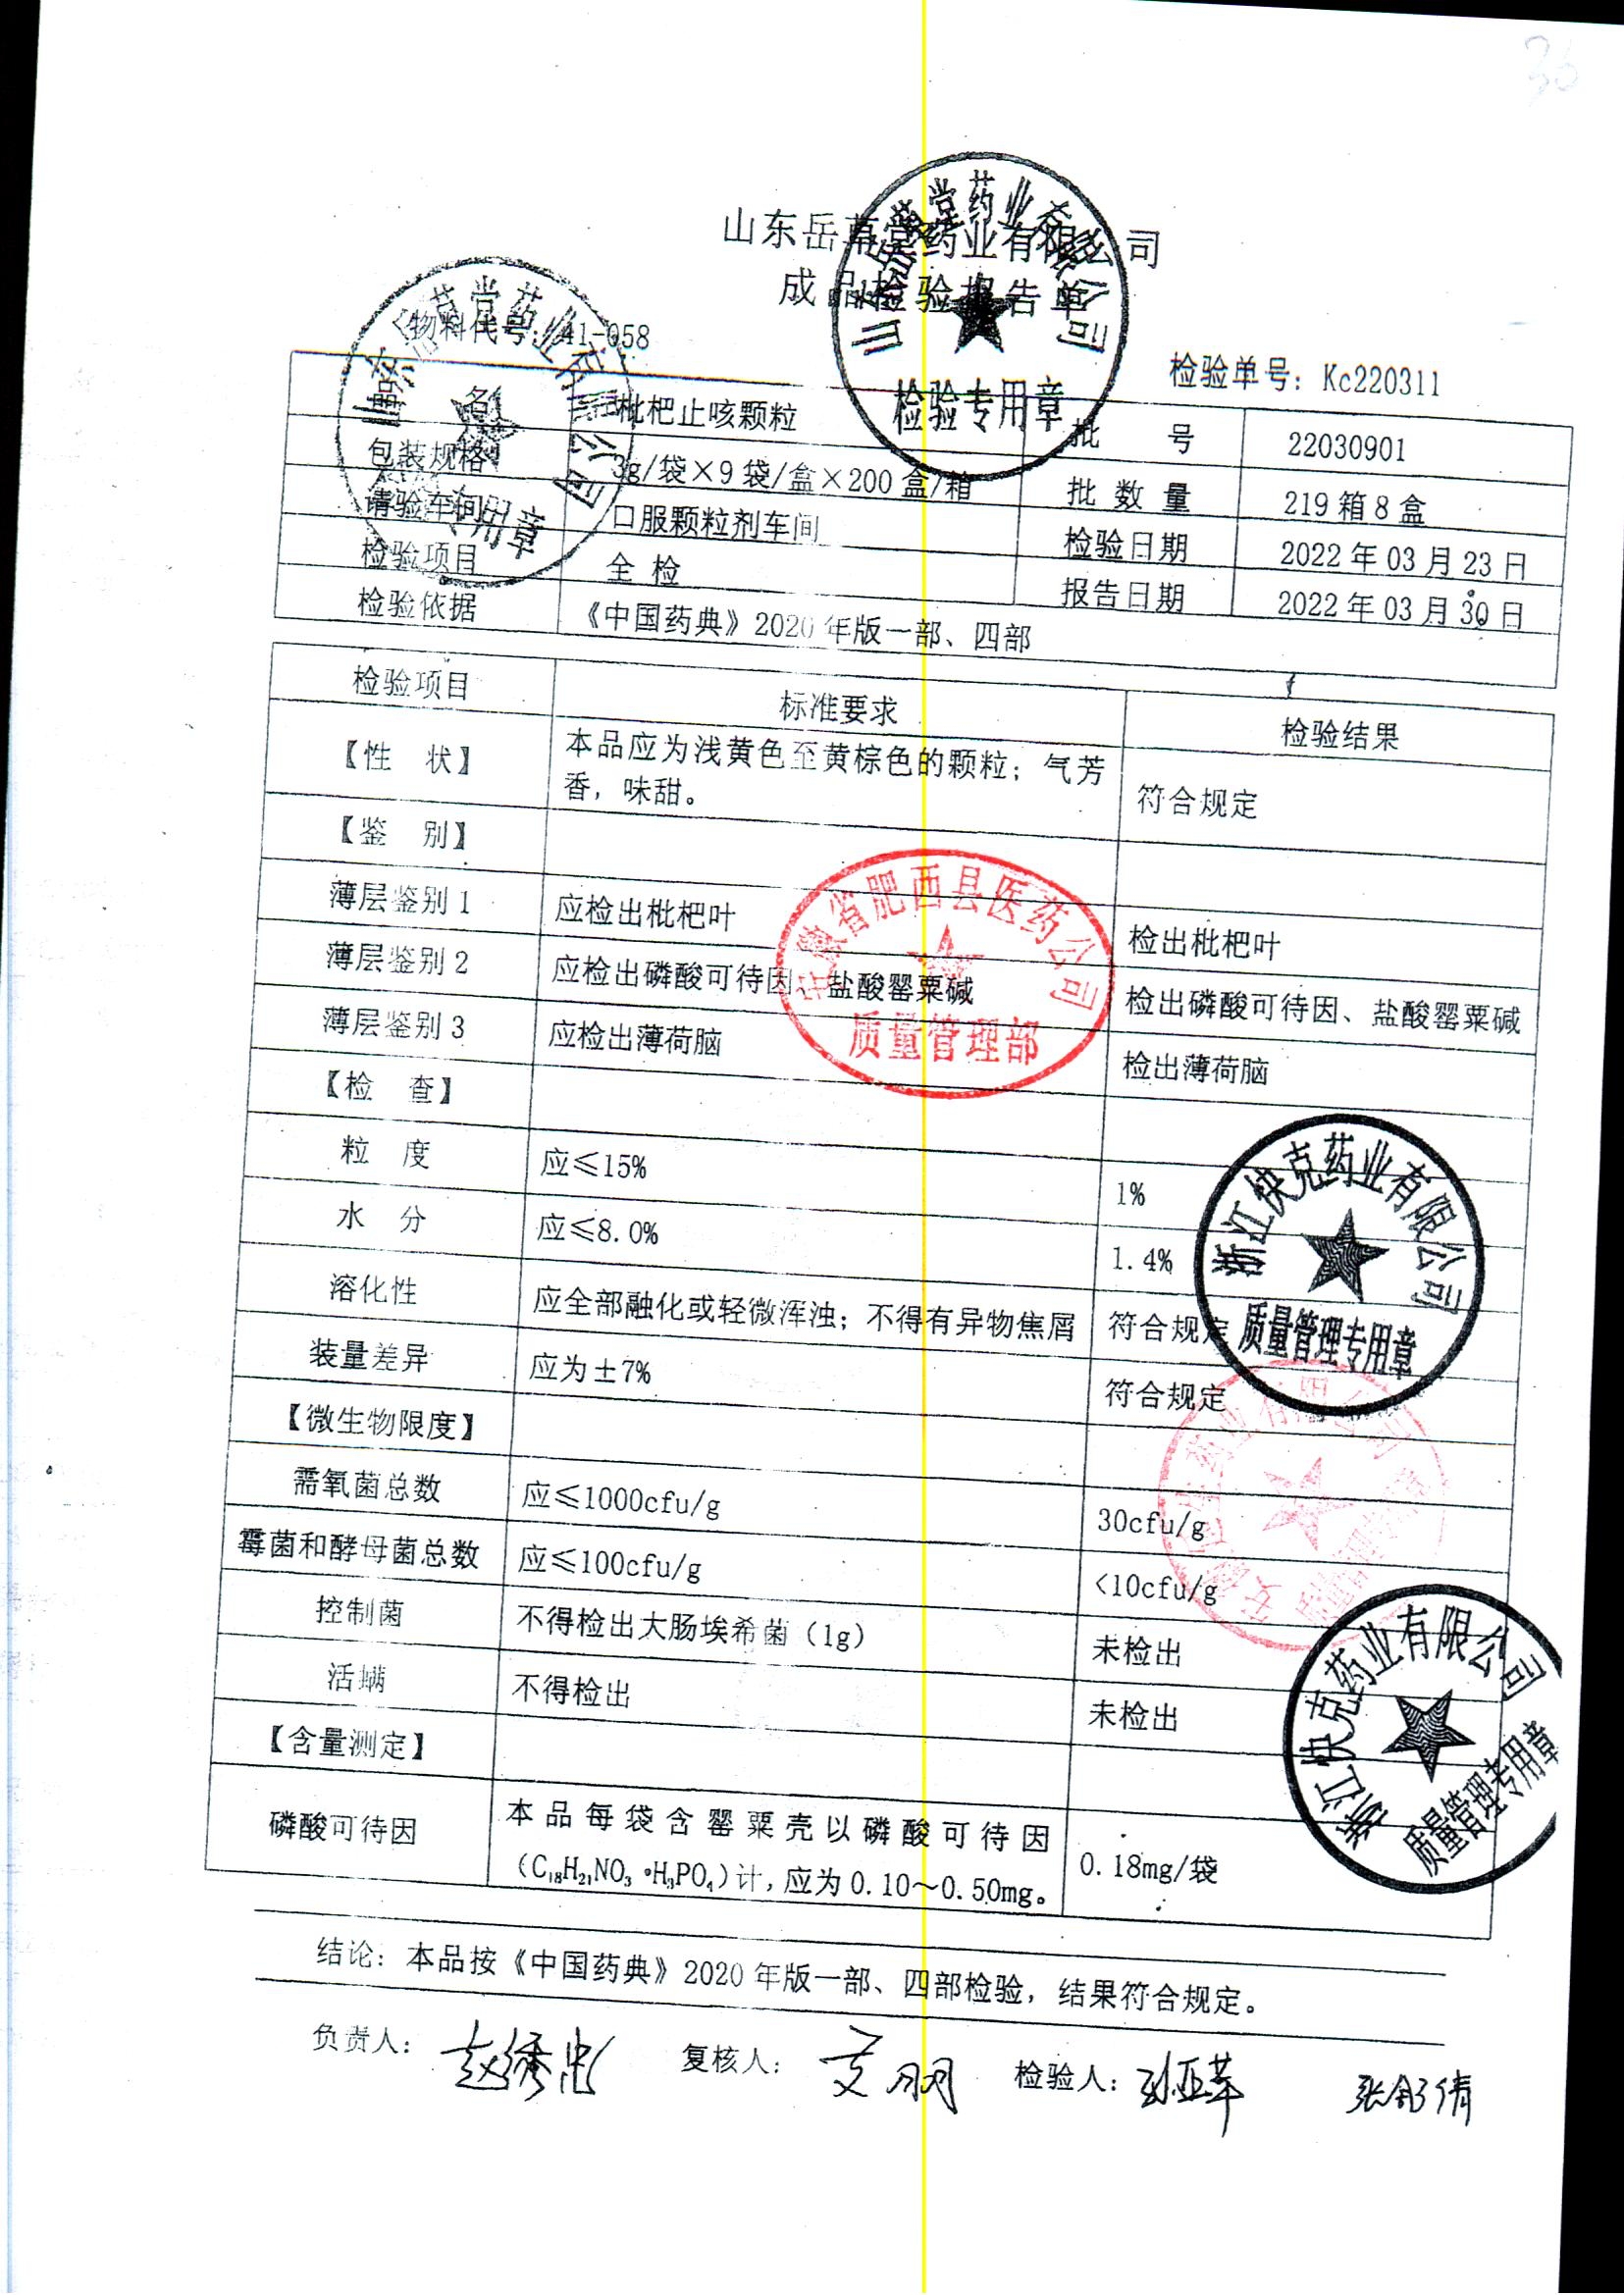 36
山东岳草堂药业有限公司
成品检验报告单
物料代号：41-058
检验单号：Kc220311
名 枇杷止咳颗粒 批 号 22030901
包装规格 3g/袋×9袋/盒×200盒/箱 批数量 219箱8盒
请验车间 口服颗粒剂车间 检验日期 2022年03月23日
检验项目 全检 报告日期 2022年03月30日
检验依据 《中国药典》2020年版一部、四部
检验项目 标准要求 检验结果
【性 状】 本品应为浅黄色至黄棕色的颗粒；气芳
香，味甜。 符合规定
【鉴 别】
薄层鉴别1 应检出枇杷叶 检出枇杷叶
薄层鉴别2 应检出磷酸可待因、盐酸罂粟碱 检出磷酸可待因、盐酸罂粟碱
薄层鉴别3 应检出薄荷脑 检出薄荷脑
【检 查】
粒 度 应≤15% 1%
水 分 应≤8.0% 1.4%
溶化性 应全部融化或轻微浑浊；不得有异物焦屑 符合规定
装量差异 应为±7% 符合规定
【微生物限度】
需氧菌总数 应≤1000cfu/g 30cfu/g
霉菌和酵母菌总数 应≤100cfu/g <10cfu/g
控制菌 不得检出大肠埃希菌（1g） 未检出
活螨 不得检出 未检出
【含量测定】
磷酸可待因 本品每袋含罂粟壳以磷酸可待因
（C₁₈H₂₁NO₃·H₃PO₄）计，应为0.10～0.50mg。 0.18mg/袋
结论：本品按《中国药典》2020年版一部、四部检验，结果符合规定。
负责人： 赵绣忠 复核人： 检验人：
检验专用章
安徽省肥西县医药公司
质量管理部
浙江快克药业有限公司
质量管理专用章
浙江快克药业有限公司
质量管理专用章